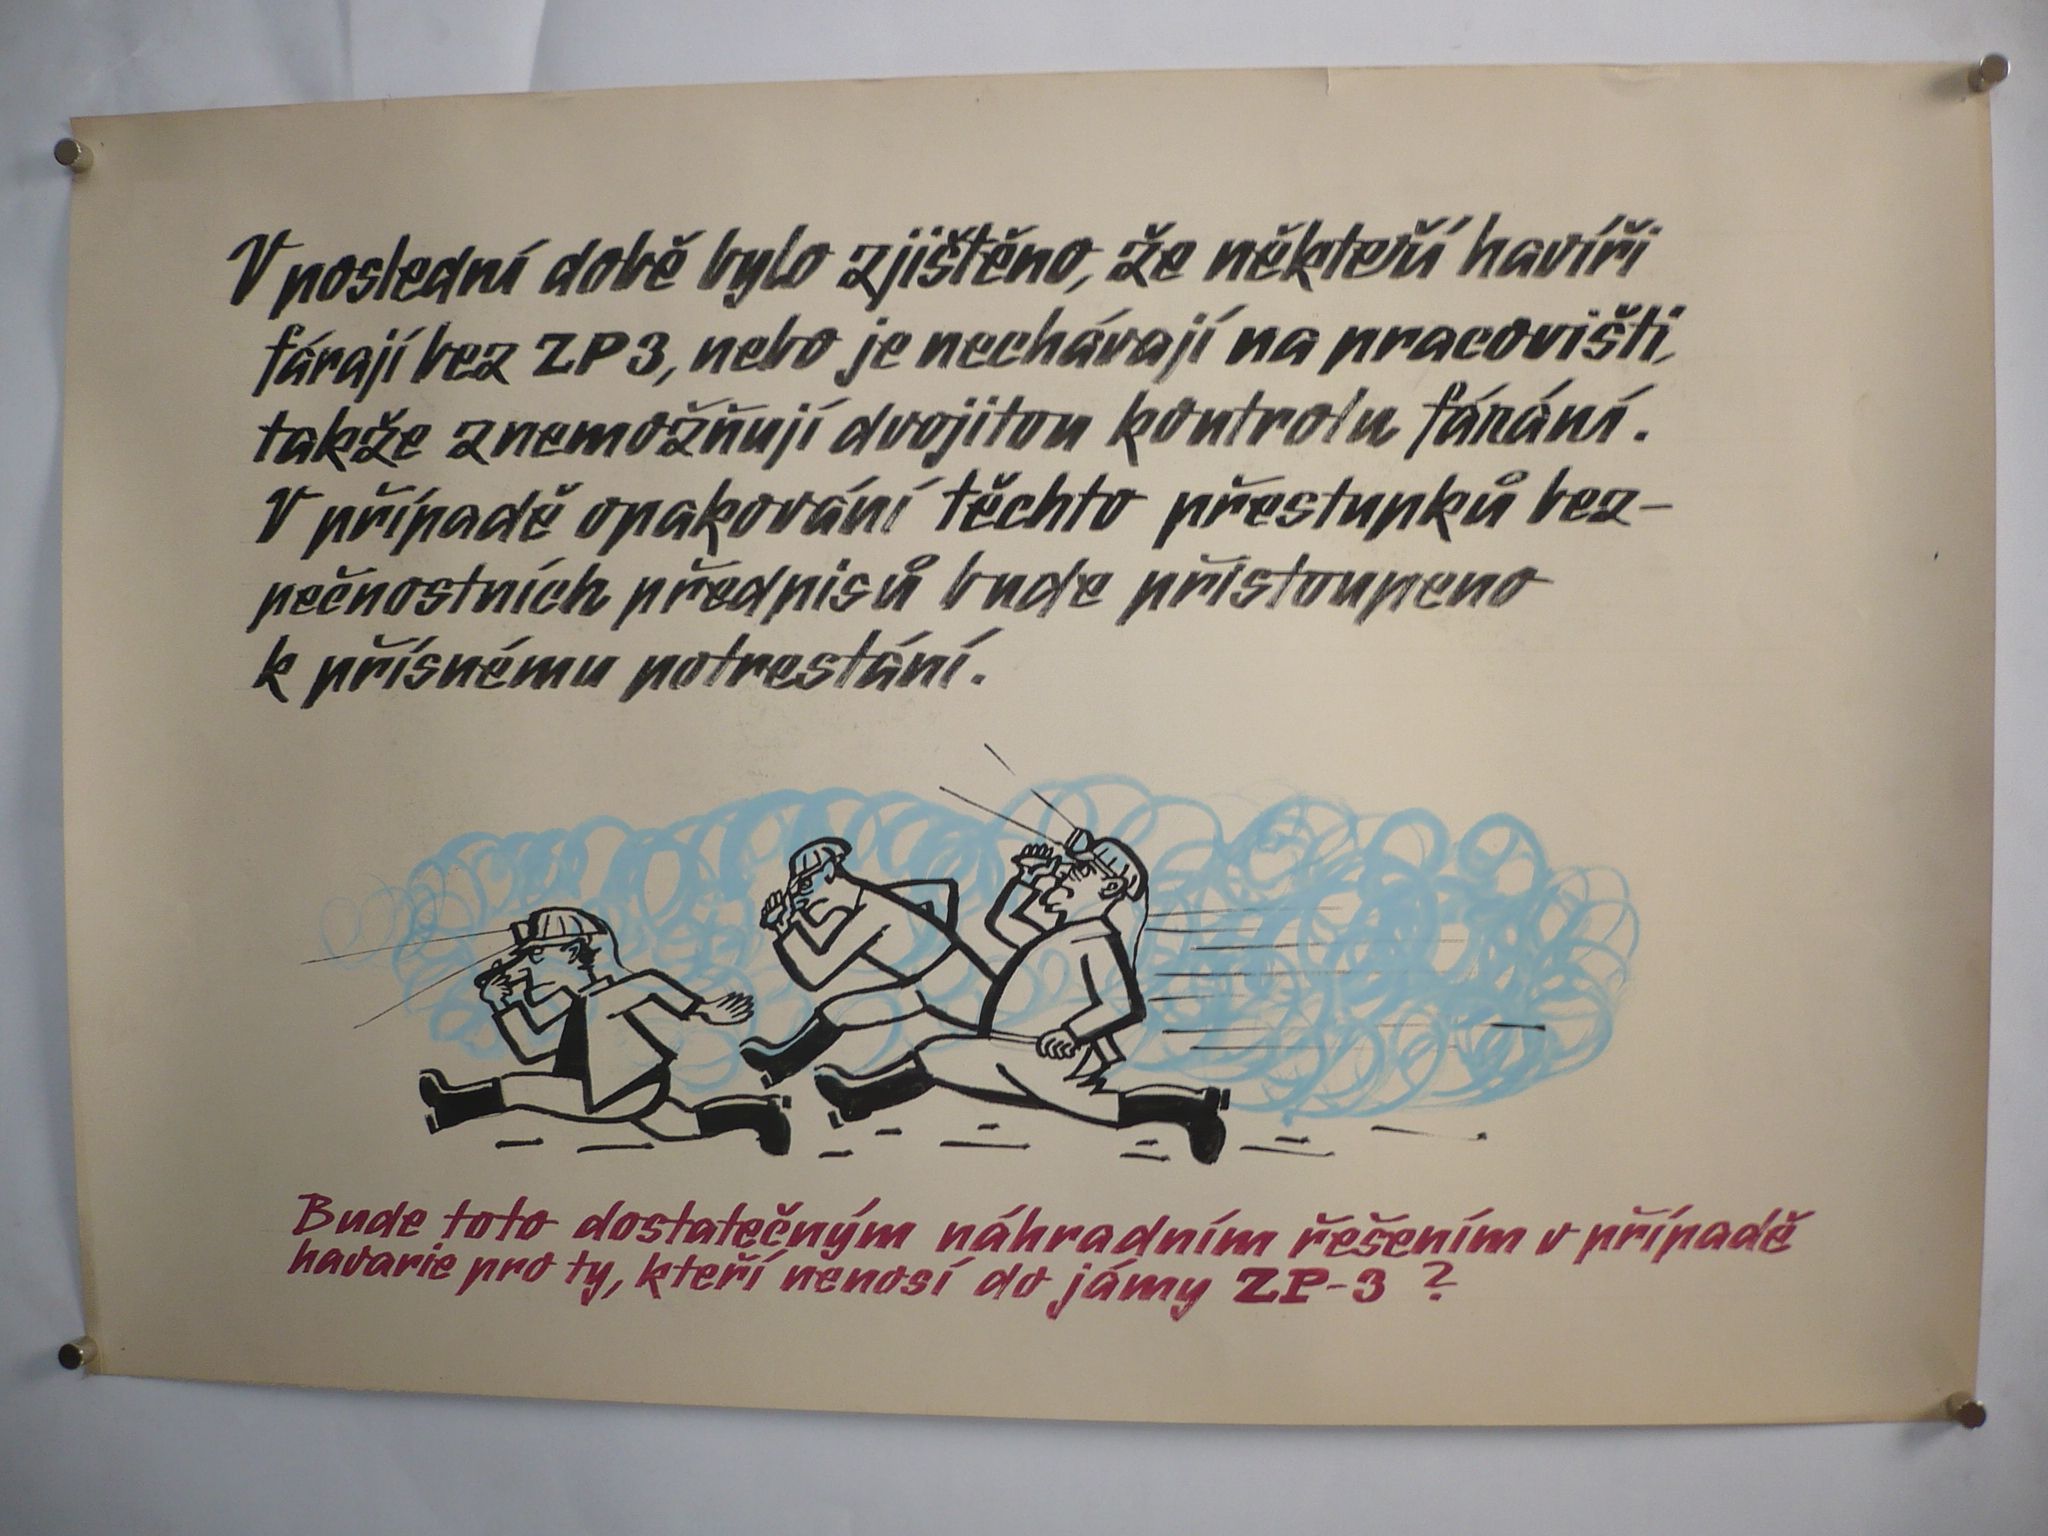 V poslední době bylo zjištěno, že někteří havíři
fárají bez ZP3, nebo je nechávají na pracovišti,
takže znemožňují dvojitou kontrolu fárání.
V případě opakování těchto přestupků bez-
pečnostních předpisů bude přistoupeno
k přísnému potrestání.
Bude toto dostatečným náhradním řešením v případě
havarie pro ty, kteří nenosí do jámy ZP-3 ?